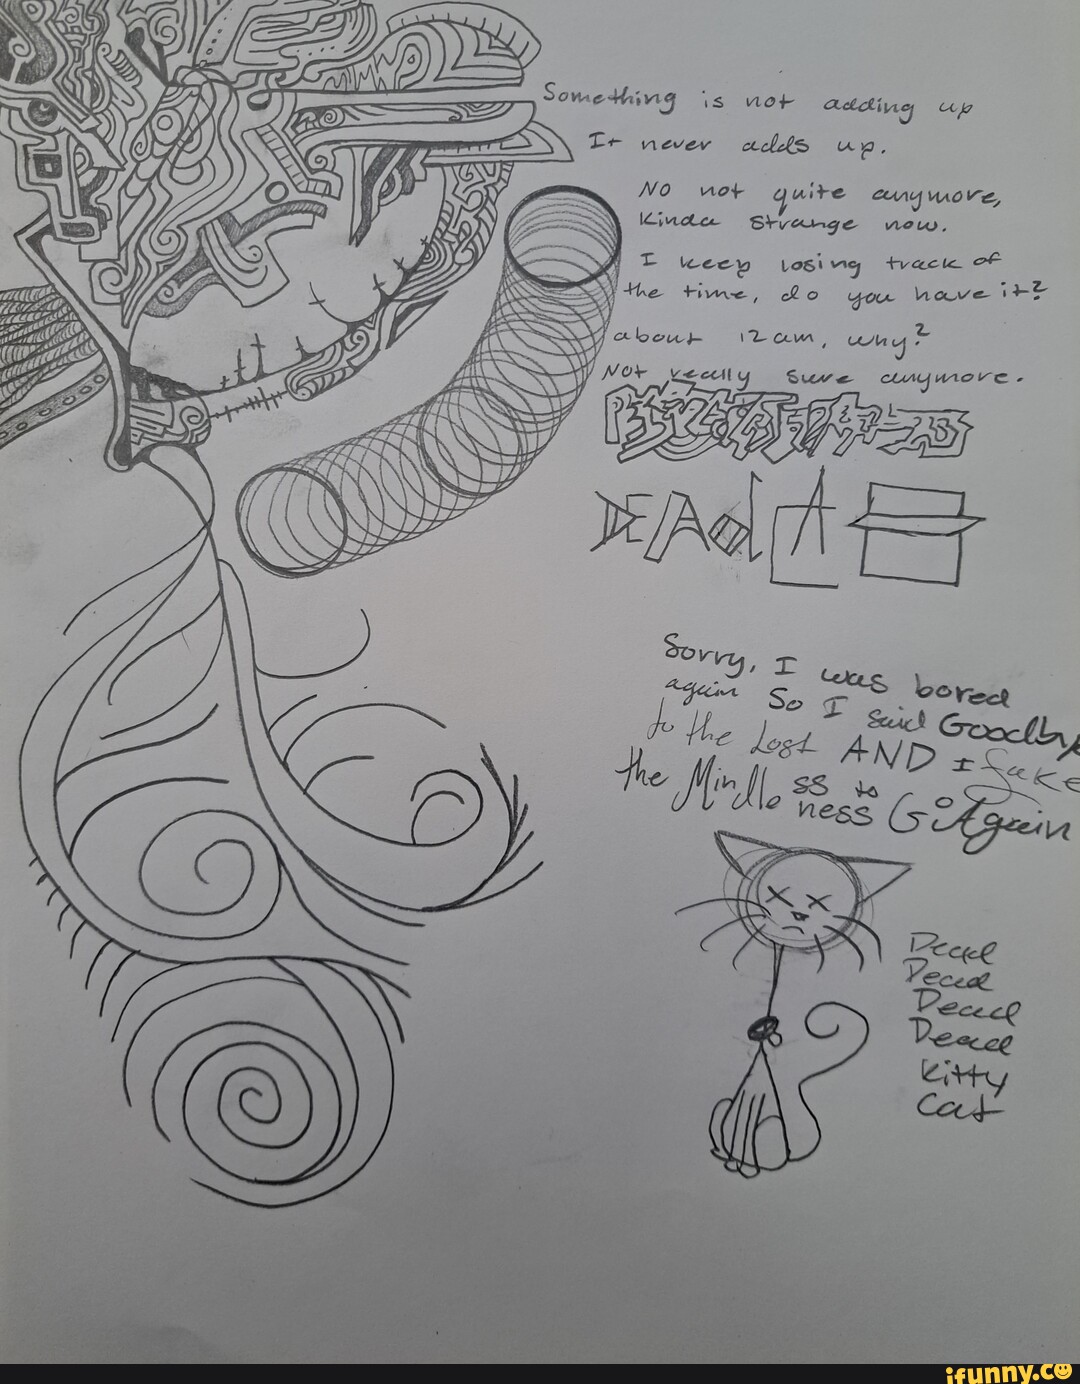 Something is not adding up
It never adds up.
No not quite anymore,
Kinda strange now.
I keep losing track of
the time, do you have it?
about 12am, why?
Not really sure anymore.
DEAd
Sorry, I was bored
again So I said Goodby
to the Lost AND I fake
the Mindle ss to
ness Go Again
Dead
Dead
Dead
Dead
Kitty
Cat
ifunny.co